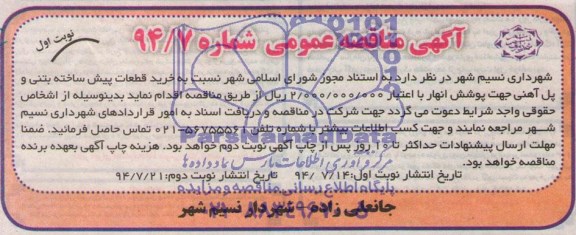 آگهی مناقصه عمومی شماره ۹۴/۷
نوبت اول
شهرداری نسیم شهر در نظر دارد به استناد مجوز شورای اسلامی شهر نسبت به خرید قطعات پیش ساخته بتنی و
پل آهنی جهت پوشش انهار با اعتبار ۲/۰۰۰/۰۰۰/۰۰۰ ریال از طریق مناقصه اقدام نماید بدینوسیله از اشخاص
حقوقی واجد شرایط دعوت می گردد جهت شرکت در مناقصه و دریافت اسناد به امور قراردادهای شهرداری نسیم
شهر مراجعه نمایند و جهت کسب اطلاعات بیشتر با شماره تلفن ۵۶۷۵۵۵۶۱-۰۲۱ تماس حاصل فرمائید. ضمنا
مهلت ارسال پیشنهادات حداکثر تا ۱۰ روز پس از چاپ آگهی نوبت دوم خواهد بود. هزینه چاپ آگهی بعهده برنده
مناقصه خواهد بود.
تاریخ انتشار نوبت اول: ۹۴/۷/۱۴ تاریخ انتشار نوبت دوم: ۹۴/۷/۲۱
جانعلی زاده - شهردار نسیم شهر
مرکز آوری اطلاعات پارس نماد داده ها
پایگاه اطلاع رسانی مناقصه و مزایده